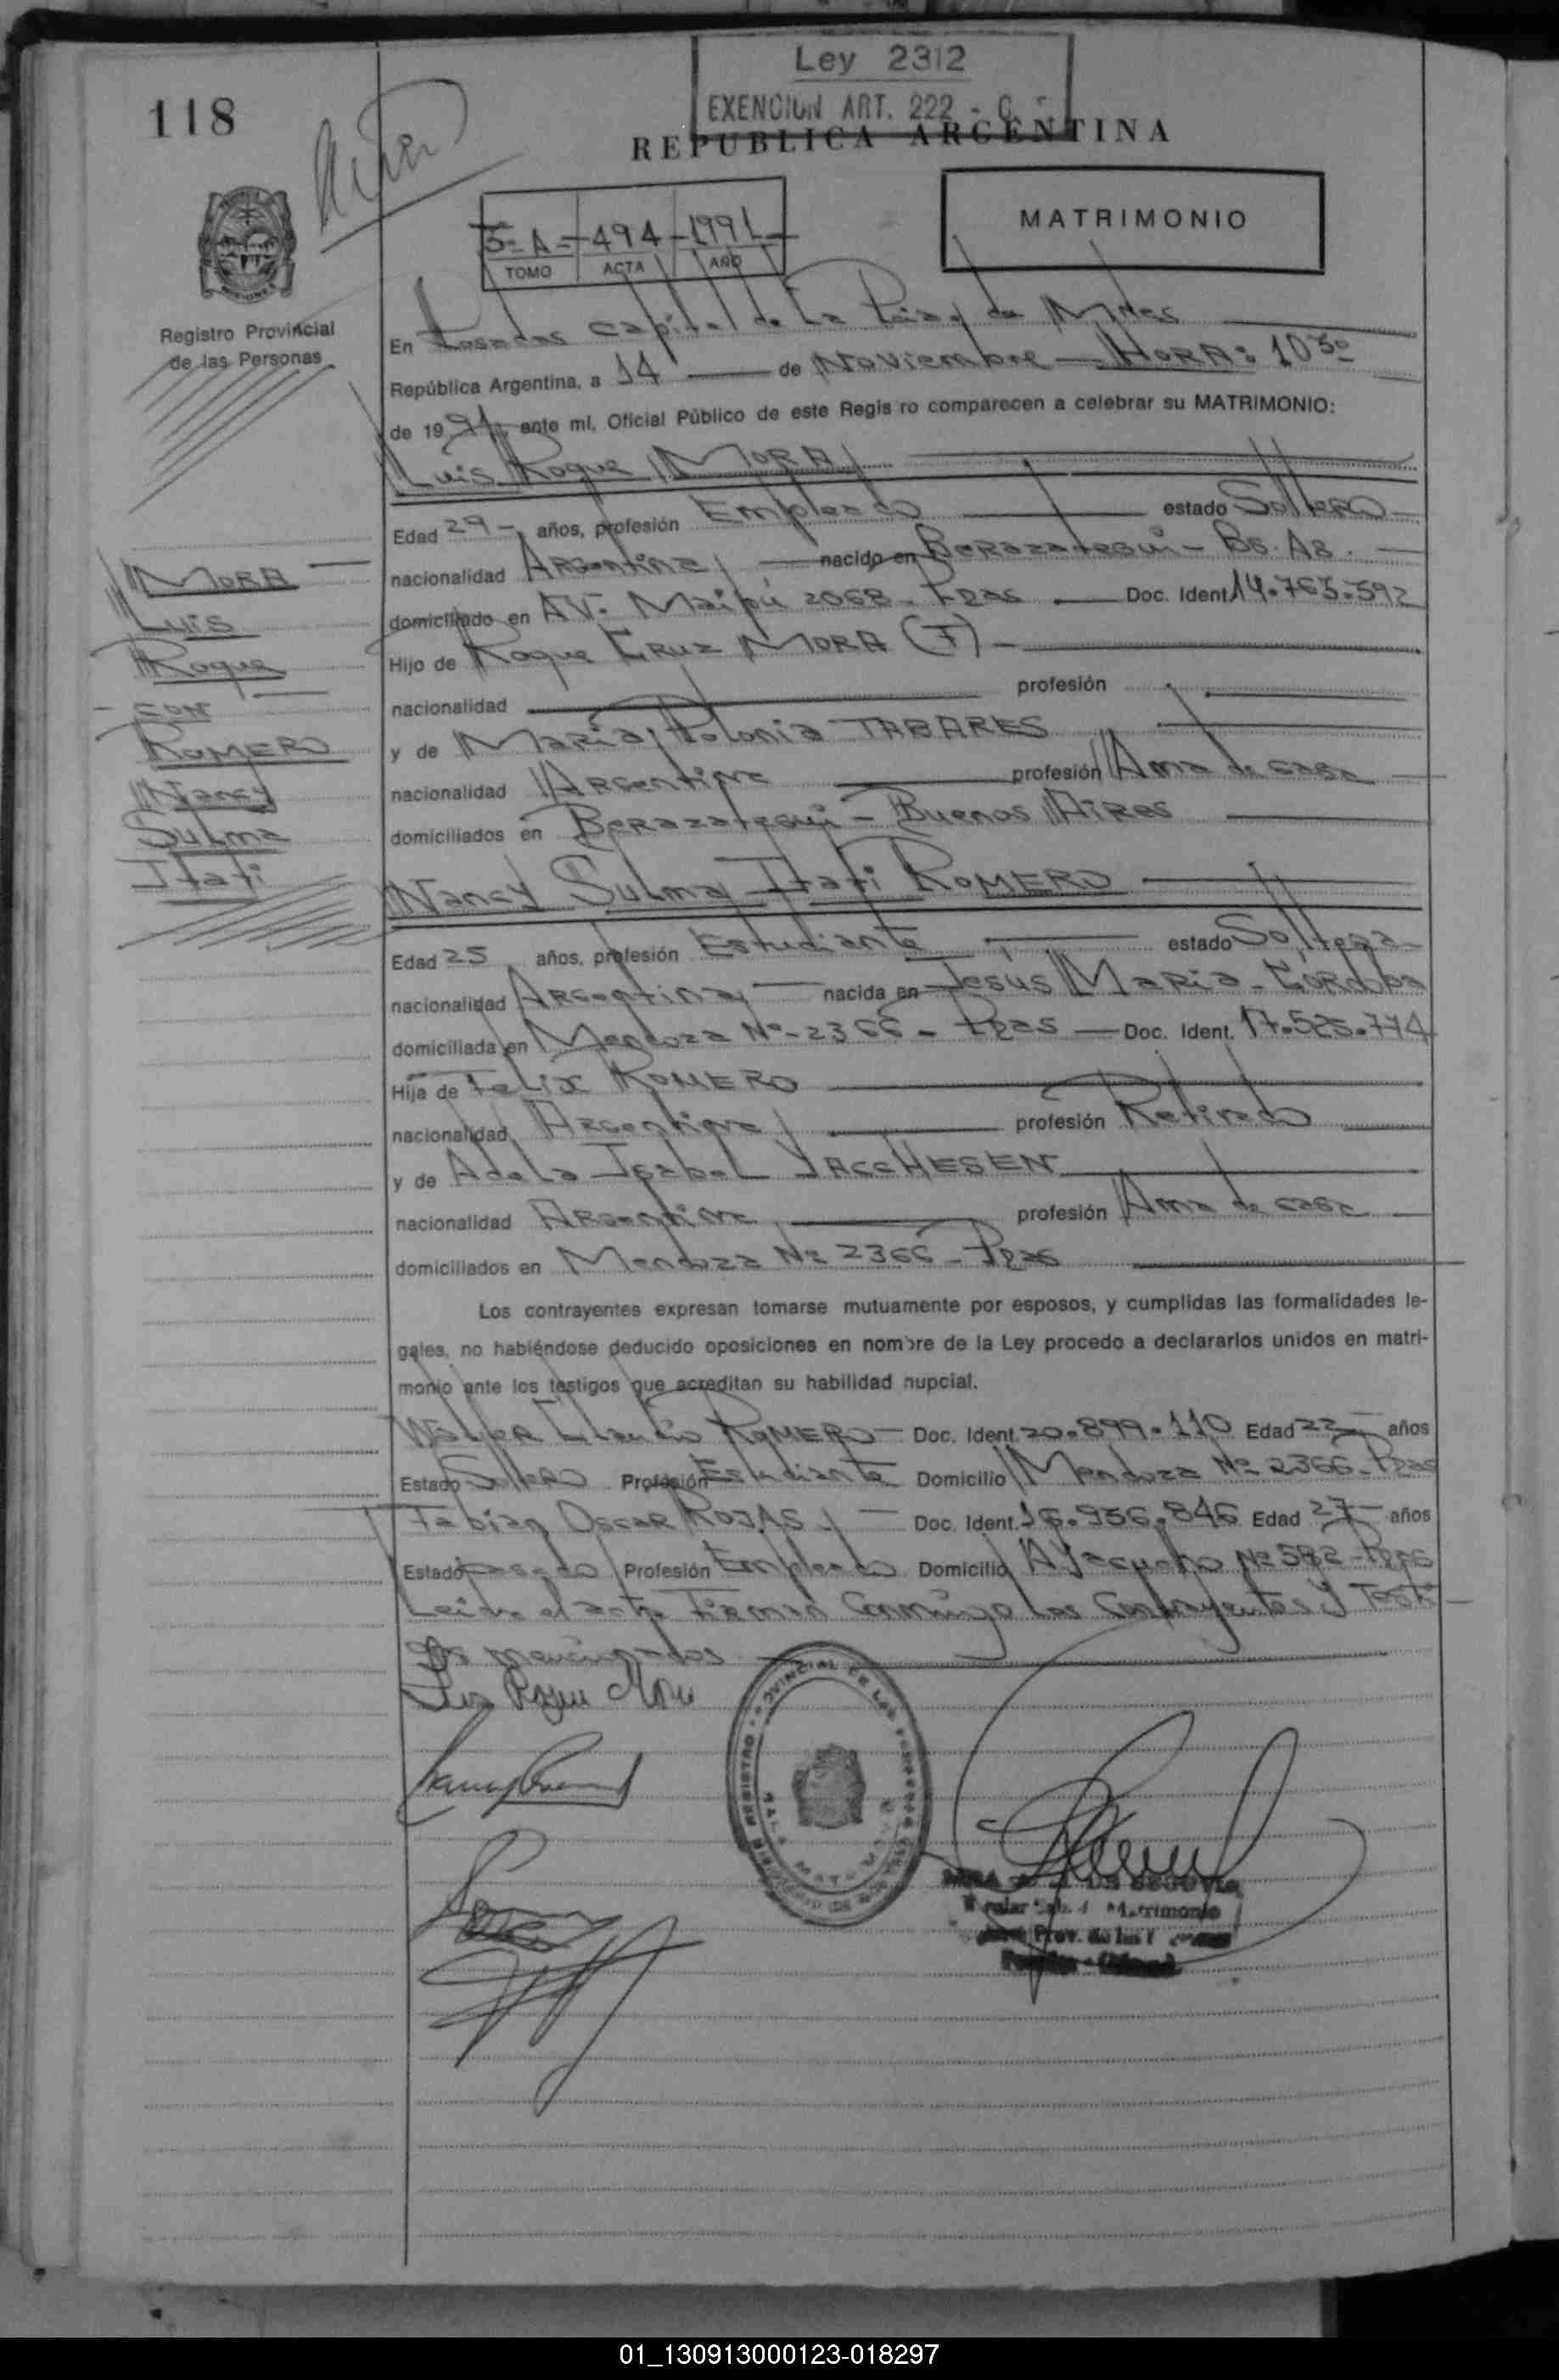 Ley 2312
EXENCION ART. 222 - C.
118
REPUBLICA ARGENTINA
MATRIMONIO
5º A - 494 - 1991
TOMO ACTA AÑO
Registro Provincial
de las Personas
En Posadas Capital de La Pcia. de Mnes
República Argentina, a 14 de Noviembre - HORA: 10 30
de 1991, ante mí, Oficial Público de este Regis ro comparecen a celebrar su MATRIMONIO:
Luis Roque MORA
Edad 29 - años, profesión Empleado estado Soltero
nacionalidad Argentina nacido en Berazategui - Bs. As.
domiciliado en AV. Maipú 2068 - Pdas Doc. Ident. 14.763.592
Hijo de Roque Cruz MORA (F)
nacionalidad profesión
y de Maria Polonia TABARES
nacionalidad Argentina profesión Ama de casa
domiciliados en Berazategui - Buenos Aires
MORA
Luis
Roque
- CON
ROMERO
Nancy
Sulma
Itati
Nancy Sulma Itati ROMERO
Edad 25 años, profesión Estudiante estado Soltera
nacionalidad Argentina nacida en Jesús Maria - Córdoba
domiciliada en Mendoza Nº 2366 - Pdas Doc. Ident. 17.525.774
Hija de Felix ROMERO
nacionalidad Argentina profesión Retirado
y de Adela Isabel
nacionalidad Argentina profesión Ama de casa
domiciliados en Mendoza Nº 2366 - Pdas
Los contrayentes expresan tomarse mutuamente por esposos, y cumplidas las formalidades le-
gales, no habiéndose deducido oposiciones en nombre de la Ley procedo a declararlos unidos en matri-
monio ante los testigos que acreditan su habilidad nupcial.
Walter Claudio ROMERO - Doc. Ident. 20.899.110 Edad 22 años
Estado Soltero Profesión Estudiante Domicilio Mendoza Nº 2366 - Pdas
Fabian Oscar ROJAS - Doc. Ident. 16.956.846 Edad 27 años
Estado casado Profesión Empleado Domicilio Ayacucho Nº 592 - Pdas
Leida el acta Firman Conmigo los Contrayentes y Testi
gos mencionados
Luis Roque Mora
01_130913000123-018297